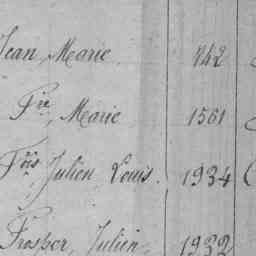 Jean Marie 742
Fre Marie 1561
Fois Julien Louis. 1934
Prosper, Julien 1932